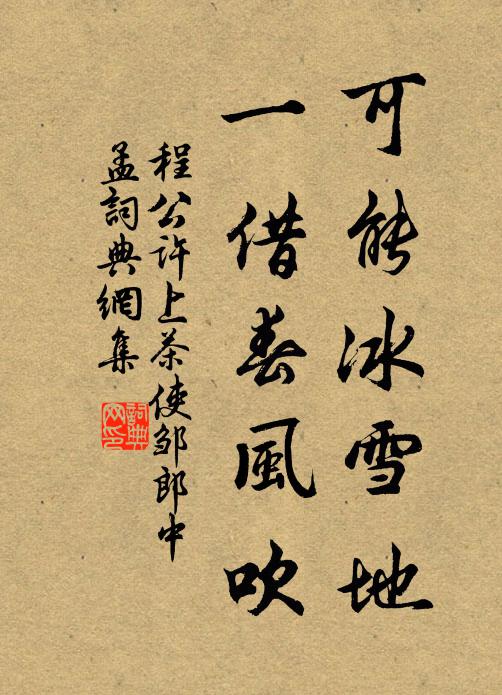 可能冰雪地
一借春風吹
程公許上茶使邹郎中
孟詞典網集
詞典
网印